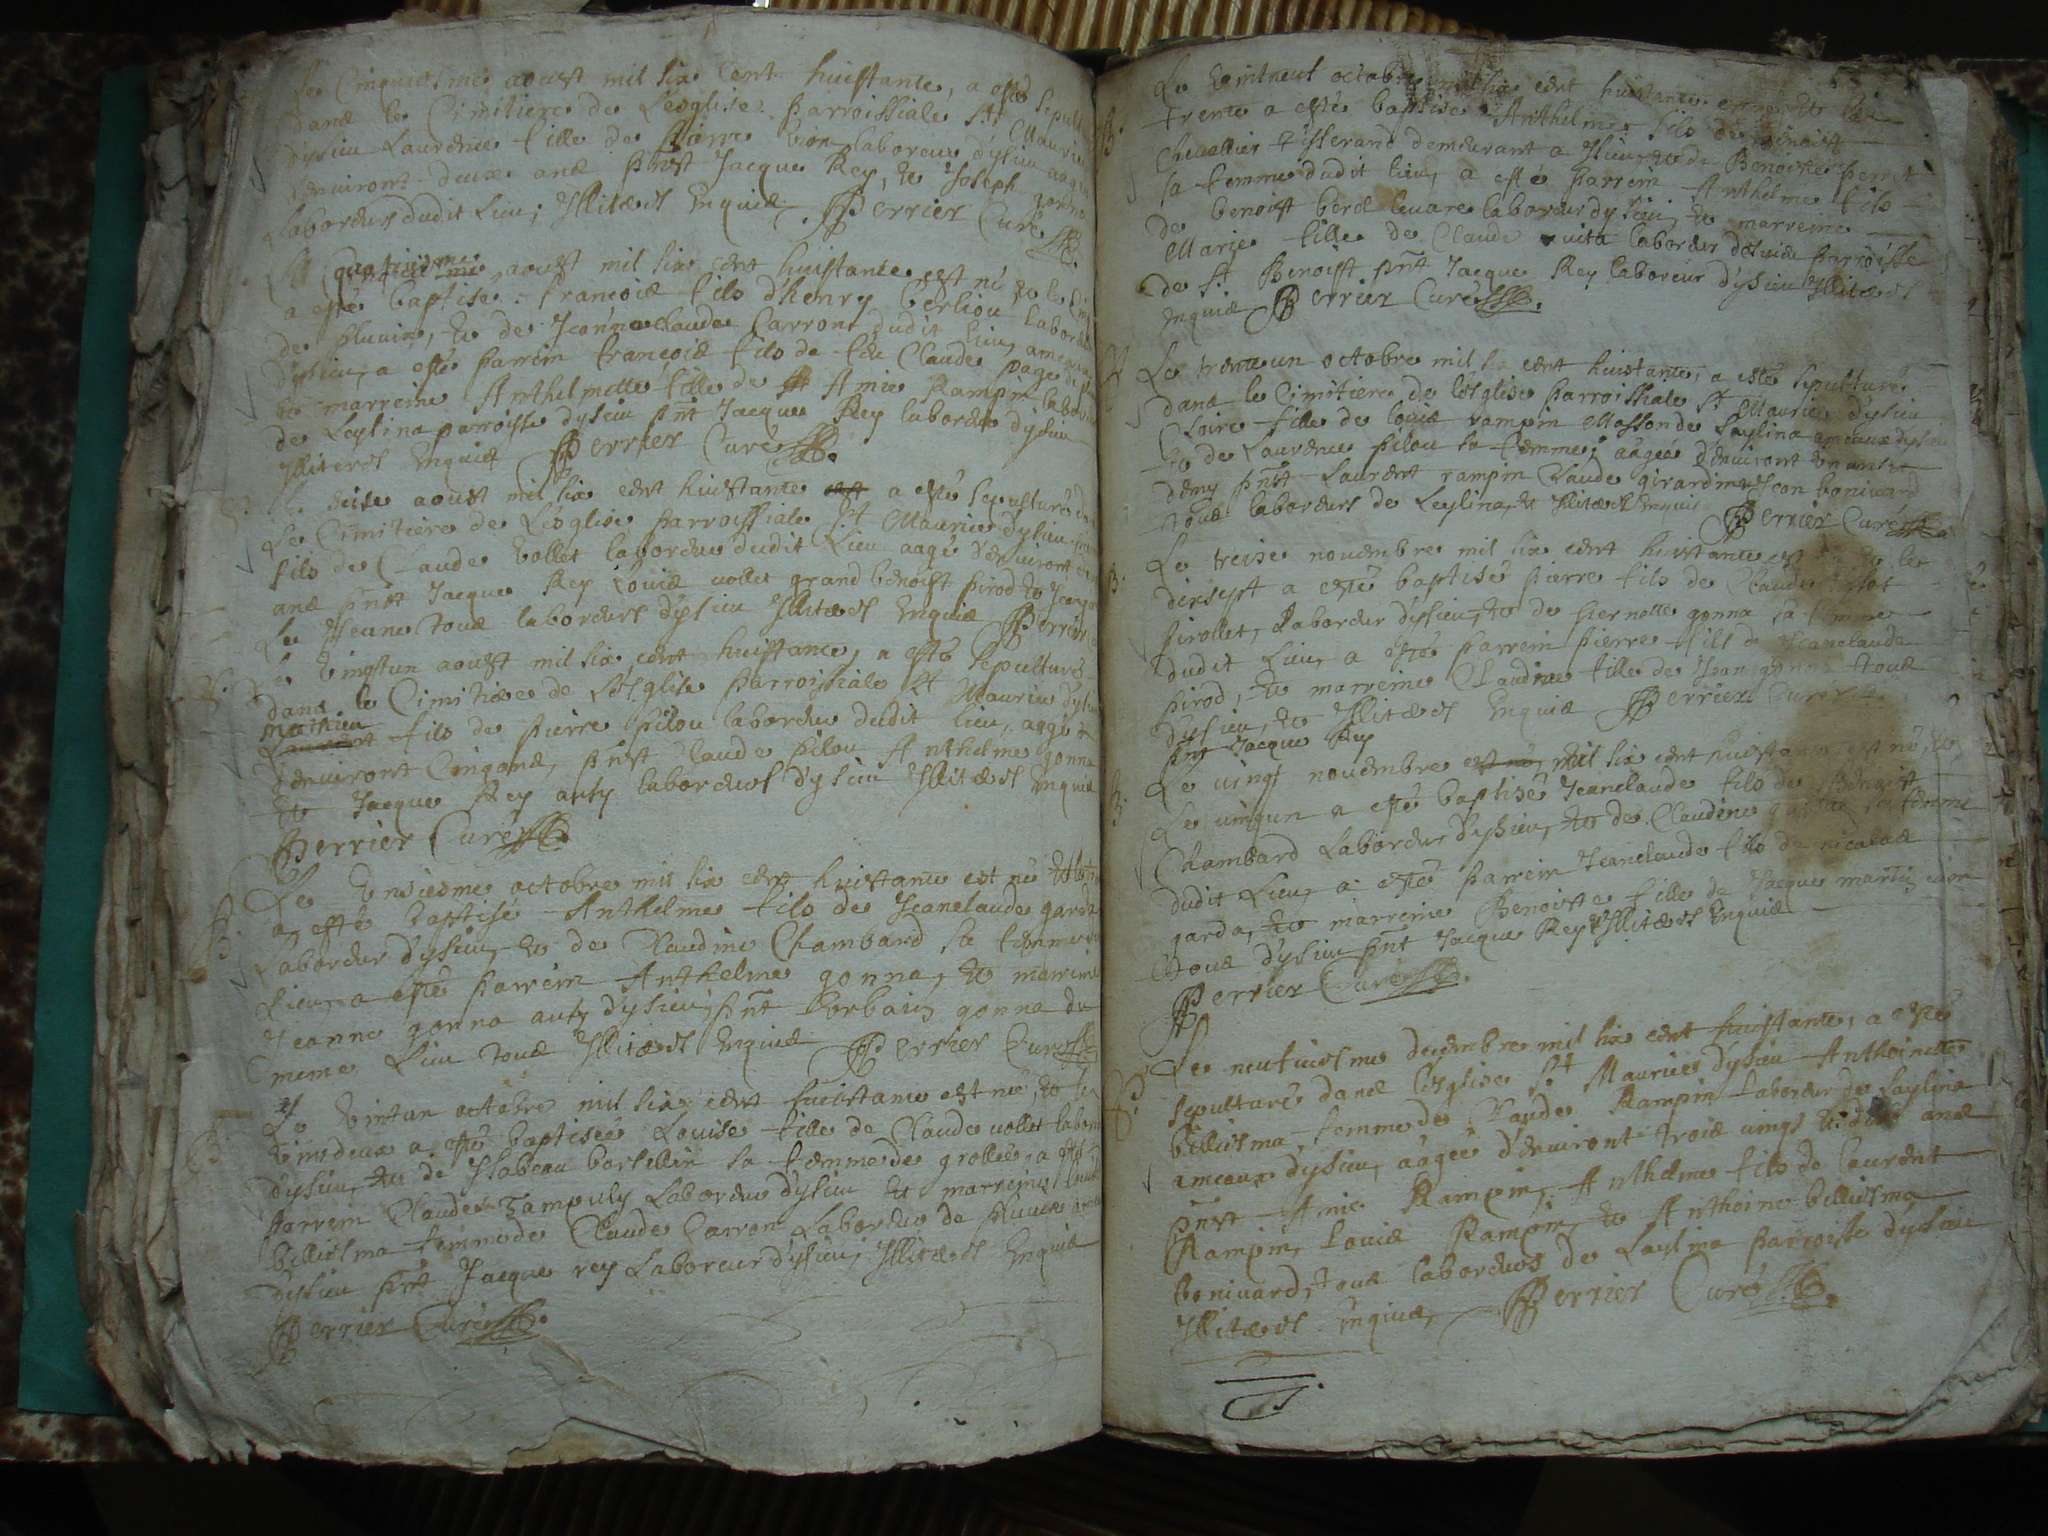 Le Cinquiesme aoust mil six Cent huistante, a esté Sepult
dans le Cimitiere de Lesglise Parroissiale St Maurice
d'ysieu Laurence fille de Pierre laboreur d'ysieu aagé
denviront deux ans pnst Jacque Rey, & Joseph gonna
Laboreurs dudit Lieu, Illiteres Enquis Perrier Curé
Le quatriesme aoust mil six cent huistante est né & le
a esté baptisé françois fils d'henry berliou laboreur
de pluvis, & de Jeanneclaude Carron dudit lieu, ameau
d'ysieu, a esté parrein françois fils de feu Claude page
& marreine Anthelmette fille de Amie Rampin laboreur
de Leylina parroisse d'ysieu pnt Jacque Rey laboreur d'ysieu
Illiteres Enquis Perrier Curé
Le seise aoust mil six cent huistante a esté sepulturé
Le Cimitiere de Lesglise parroissiale St Maurice d'ysieu
fils de Claude vollet laboreur dudit Lieu aagé denviront
ans pnst Jacque Rey Louis vollet grand benoist pirod &
Le Jeune tous laboreurs d'ysieu Illiteres Enquis Perrier
Le vingtun aoust mil six cent huistante, a esté sepulturé
dans le Cimitiere de L'esglise parroissiale St Maurice d'ysieu
mathieu
Laurent fils de pierre pilou laboreur dudit lieu, aagé
denviront Cinq ans, pnst Claude pilou Anthelme gonna
& Jacque Rey auty laboreurs d'ysieu Illiteres Enquis
Perrier Curé
Le Unsiesme octobre mil six cent huistante est né &
a esté baptisé Anthelme fils de Jeanclaude garda
Laboreur d'ysieu, & de Claudine Chambard sa femme
Lieu, a esté parrein Anthelme gonna, & marreine
Jeanne gonna auty d'ysieu, pnt Vorbain gonna du
meme Lieu tous Illiteres Enquis Perrier Curé
Le vintun octobre mil six cent huistante est né, & le
vindeux a esté baptisée Louise fille de Claude vollet laboreur
d'ysieu, & de Ysabeau borsellin sa femme de grollée, a esté
parrein Claude Tampuly Laboreur d'ysieu & marreine
billiesma femme de Claude Carron Laboreur de pluvis
d'ysieu pnt Jacque rey Laboreur d'ysieu, Illiteres Enquis
Perrier Curé
Le vintneuf octobre mil six cent huistante est né & le
trente a esté baptisé Anthelme fils de benoist
Chevallier tisserand demeurant a ysieu & de Benoiste perret
sa femme dudit lieu, a esté parrein Anthelme fils
de benoist laboreur d'ysieu, & marreine
Marie fille de Claude vita laboreur parroisse
de St Benoist pnt Jacque Rey laboreur d'ysieu Illiteres
Enquis Perrier Curé
Le trente un octobre mil six cent huistante, a esté sepulturé
dans le Cimitiere de lesglise parroissiale St Maurice d'ysieu
Cloire fille de louis rampin Masson de Laylina ameaux d'ysieu
& de Laurence pilou sa femme, aagée denviront Un ans &
demy pnst Laurent rampin Claude girard & Jean bonivard
tous laboreurs de Leylina, & Illiteres Enquis Perrier Curé
Le treise novembre mil six cent huistante est né & le
dixsept a esté baptisé pierre fils de Claude
pirollet, Laboreur d'ysieu, & de piernette gonna sa femme
dudit Lieu, a esté parrein pierre fils de Jeanclaude
pirod, & marreine Claudine fille de Jean gonna tous
d'ysieu, & Illiteres Enquis Perrier Curé
pnt Jacque Rey
Le vingt novembre est né mil six cent huistante est né, &
Le vingun a esté baptisé Jeanclaude fils de Benoist
Chambard Laboreur d'ysieu, & de Claudine garda sa femme
dudit Lieu, a esté parrein Jeanclaude fils de nicolas
garda, & marreine Benoiste fille de Jacque martin
tous d'ysieu pnt Jacque Rey & Illiteres Enquis
Perrier Curé
Le neufviesme decembre mil six cent huistante, a esté
sepulturé dans l'esglise St Maurice d'ysieu Anthoinette
billiesma, femme de Claude Rampin Laboreur de Laylina
ameaux d'ysieu, aagée d'environt trois vingt & deux ans
pnst Amie Rampin, Anthelme fils de laurent
Rampin, Louis Rampin, & Anthoine billiesma
bonivard, tous laboreurs de Laylina parroisse d'ysieu
Illiteres Enquis, Perrier Curé